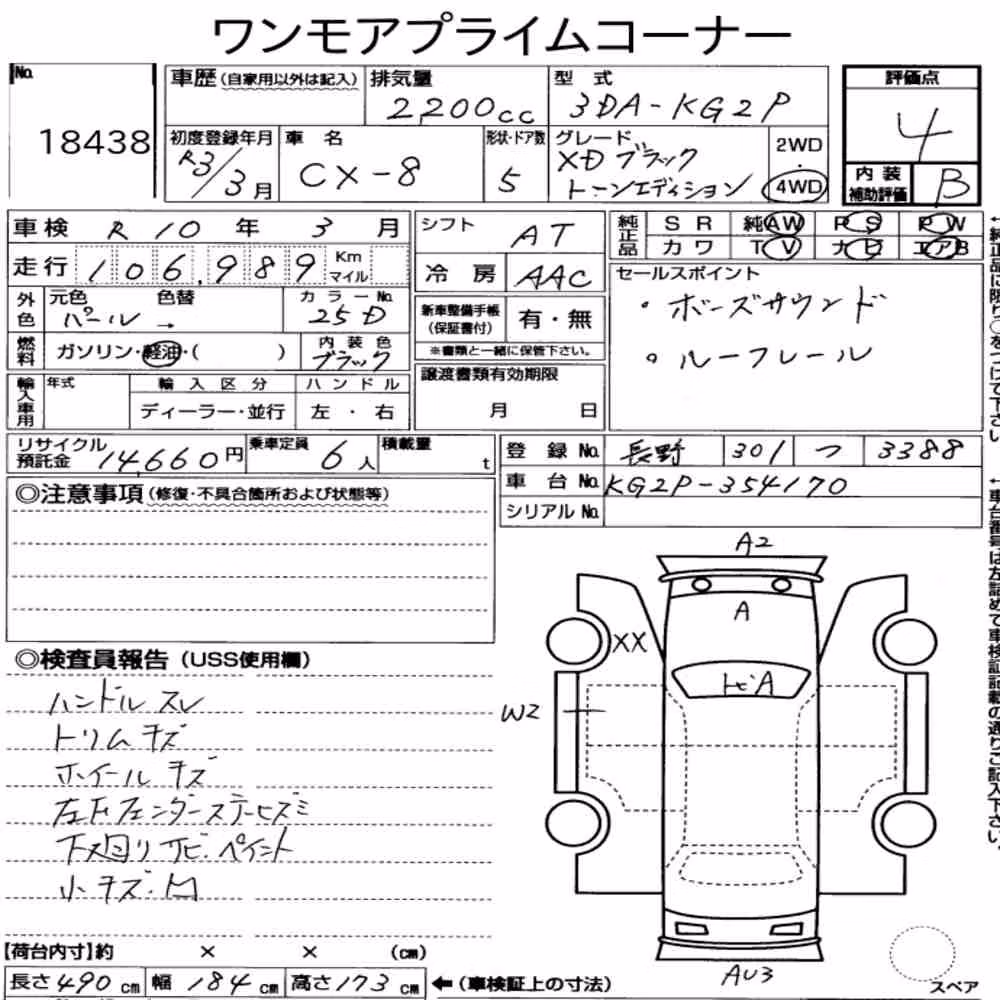 ワンモアプライムコーナー
No. 18438
車歴(自家用以外は記入)
排気量 2200cc
型式 3DA-KG2P
評価点 4
初度登録年月 R3/3月
車名 CX-8
形状・ドア数 5
グレード XD ブラックトーンエディション
2WD・4WD
内装補助評価 B
車検 R10年3月
シフト AT
純正品 SR 純AW PS PW
カワ TV ナビ エアB
走行 106,989 Km マイル
冷房 AAC
セールスポイント
・ボーズサウンド
・ルーフレール
外色 元色 パール → 色替
カラーNo. 25D
新車整備手帳(保証書付) 有・無
※書類と一緒に保管下さい。
燃料 ガソリン・軽油・( )
内装色 ブラック
輸入車用 年式 輸入区分 ハンドル
ディーラー・並行 左・右
譲渡書類有効期限
月 日
リサイクル預託金 14,660円
乗車定員 6人
積載量 t
登録No. 長野 301 つ 3388
車台No. KG2P-354170
シリアルNo.
◎注意事項(修復・不具合箇所および状態等)
◎検査員報告(USS使用欄)
ハンドルスレ
トリムキズ
ホイールキズ
下廻りサビ・ペイント
小キズ・凹
A2
A
XX
トビA
W2
AU3
スペア
【荷台内寸】約 × × (cm)
長さ490cm 幅184cm 高さ173cm ←(車検証上の寸法)
←純正品に限り○をつけて下さい。
←車台番号は左詰めで車検証記載の通りご記入下さい。